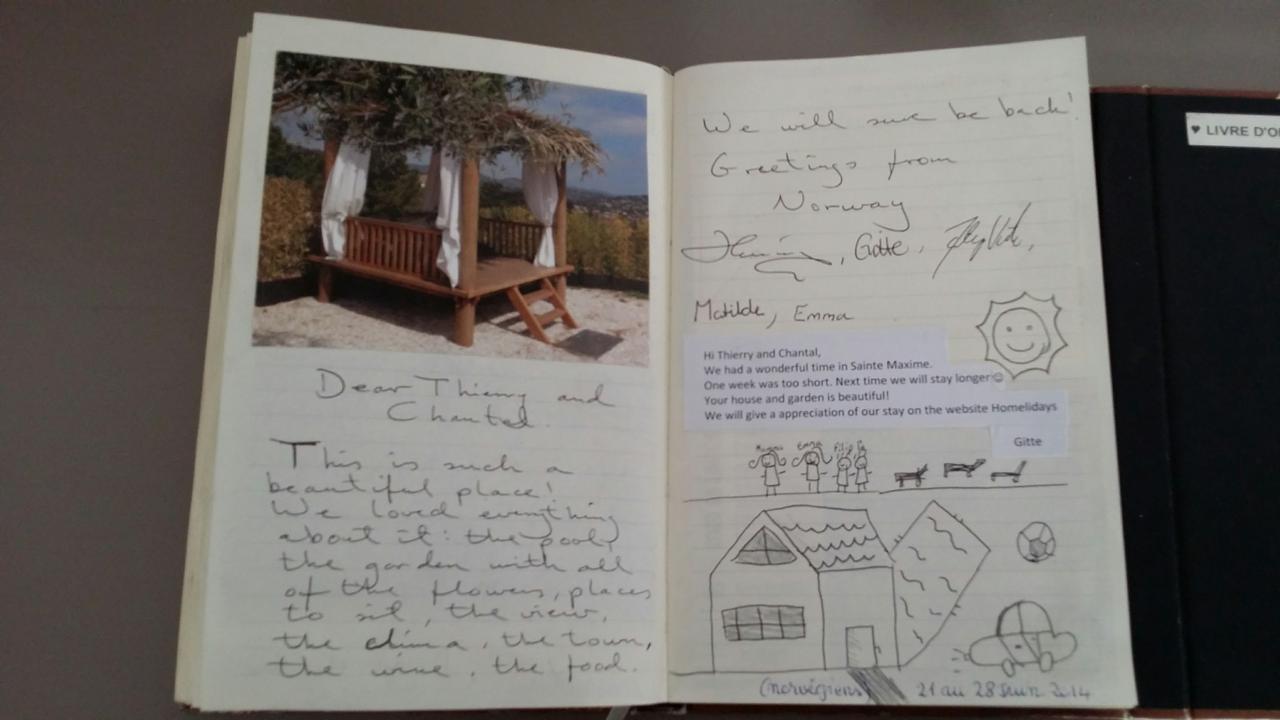 Dear Thierry and
Chantal.
This is such a
beautiful place!
We loved everything
about it: the pool,
the garden with all
of the flowers, places
to sit, the view,
the clima, the town,
the wine, the food.
We will sure be back!
Greetings from
Norway
, Gitte,
Matilde, Emma
Hi Thierry and Chantal,
We had a wonderful time in Sainte Maxime.
One week was too short. Next time we will stay longer☺
Your house and garden is beautiful!
We will give a appreciation of our stay on the website Homelidays
Gitte
Emma Filip
(norvégiens) 21 au 28 juin 2014
♥ LIVRE D'O